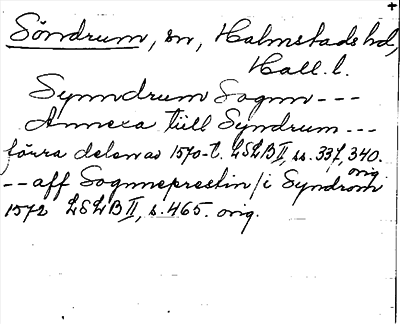 Söndrum, sn, Halmstads hd,
Hall. l.
Synndrum Sognn ---
Annexa till Syndrum ---
förra delen av 1570-t. LSLB II, ss. 337, 340.
orig.
-- aff Sogneprestin / i Syndrom
1572 LSLB II, s. 465. orig.